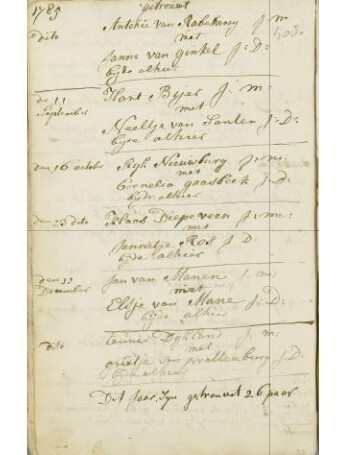 1785 getrouwt
dito Antonie van Rabenswey j: m:
met
Janna van Ginkel J: D:
byde alhier
den 11 September Hant Byer j: m:
met
Neeltje van Santen J: D:
byde alhier
den 16 octobr Nieuwburg j: m:
met
Cornelia gaasbeek J: D:
byde alhier
den 23 dito Klaas Diepeveen j: m:
met
Jannetje Ros J: D:
byde alhier
den 11 December Jan van Manen j: m:
met
Elsje van Mane J: D:
byde alhier
dito teunis Dykland j: m:
met
grietje van wallenburg J: D:
byde alhier
Dit Jaar Zyn getrouwt 26 paar